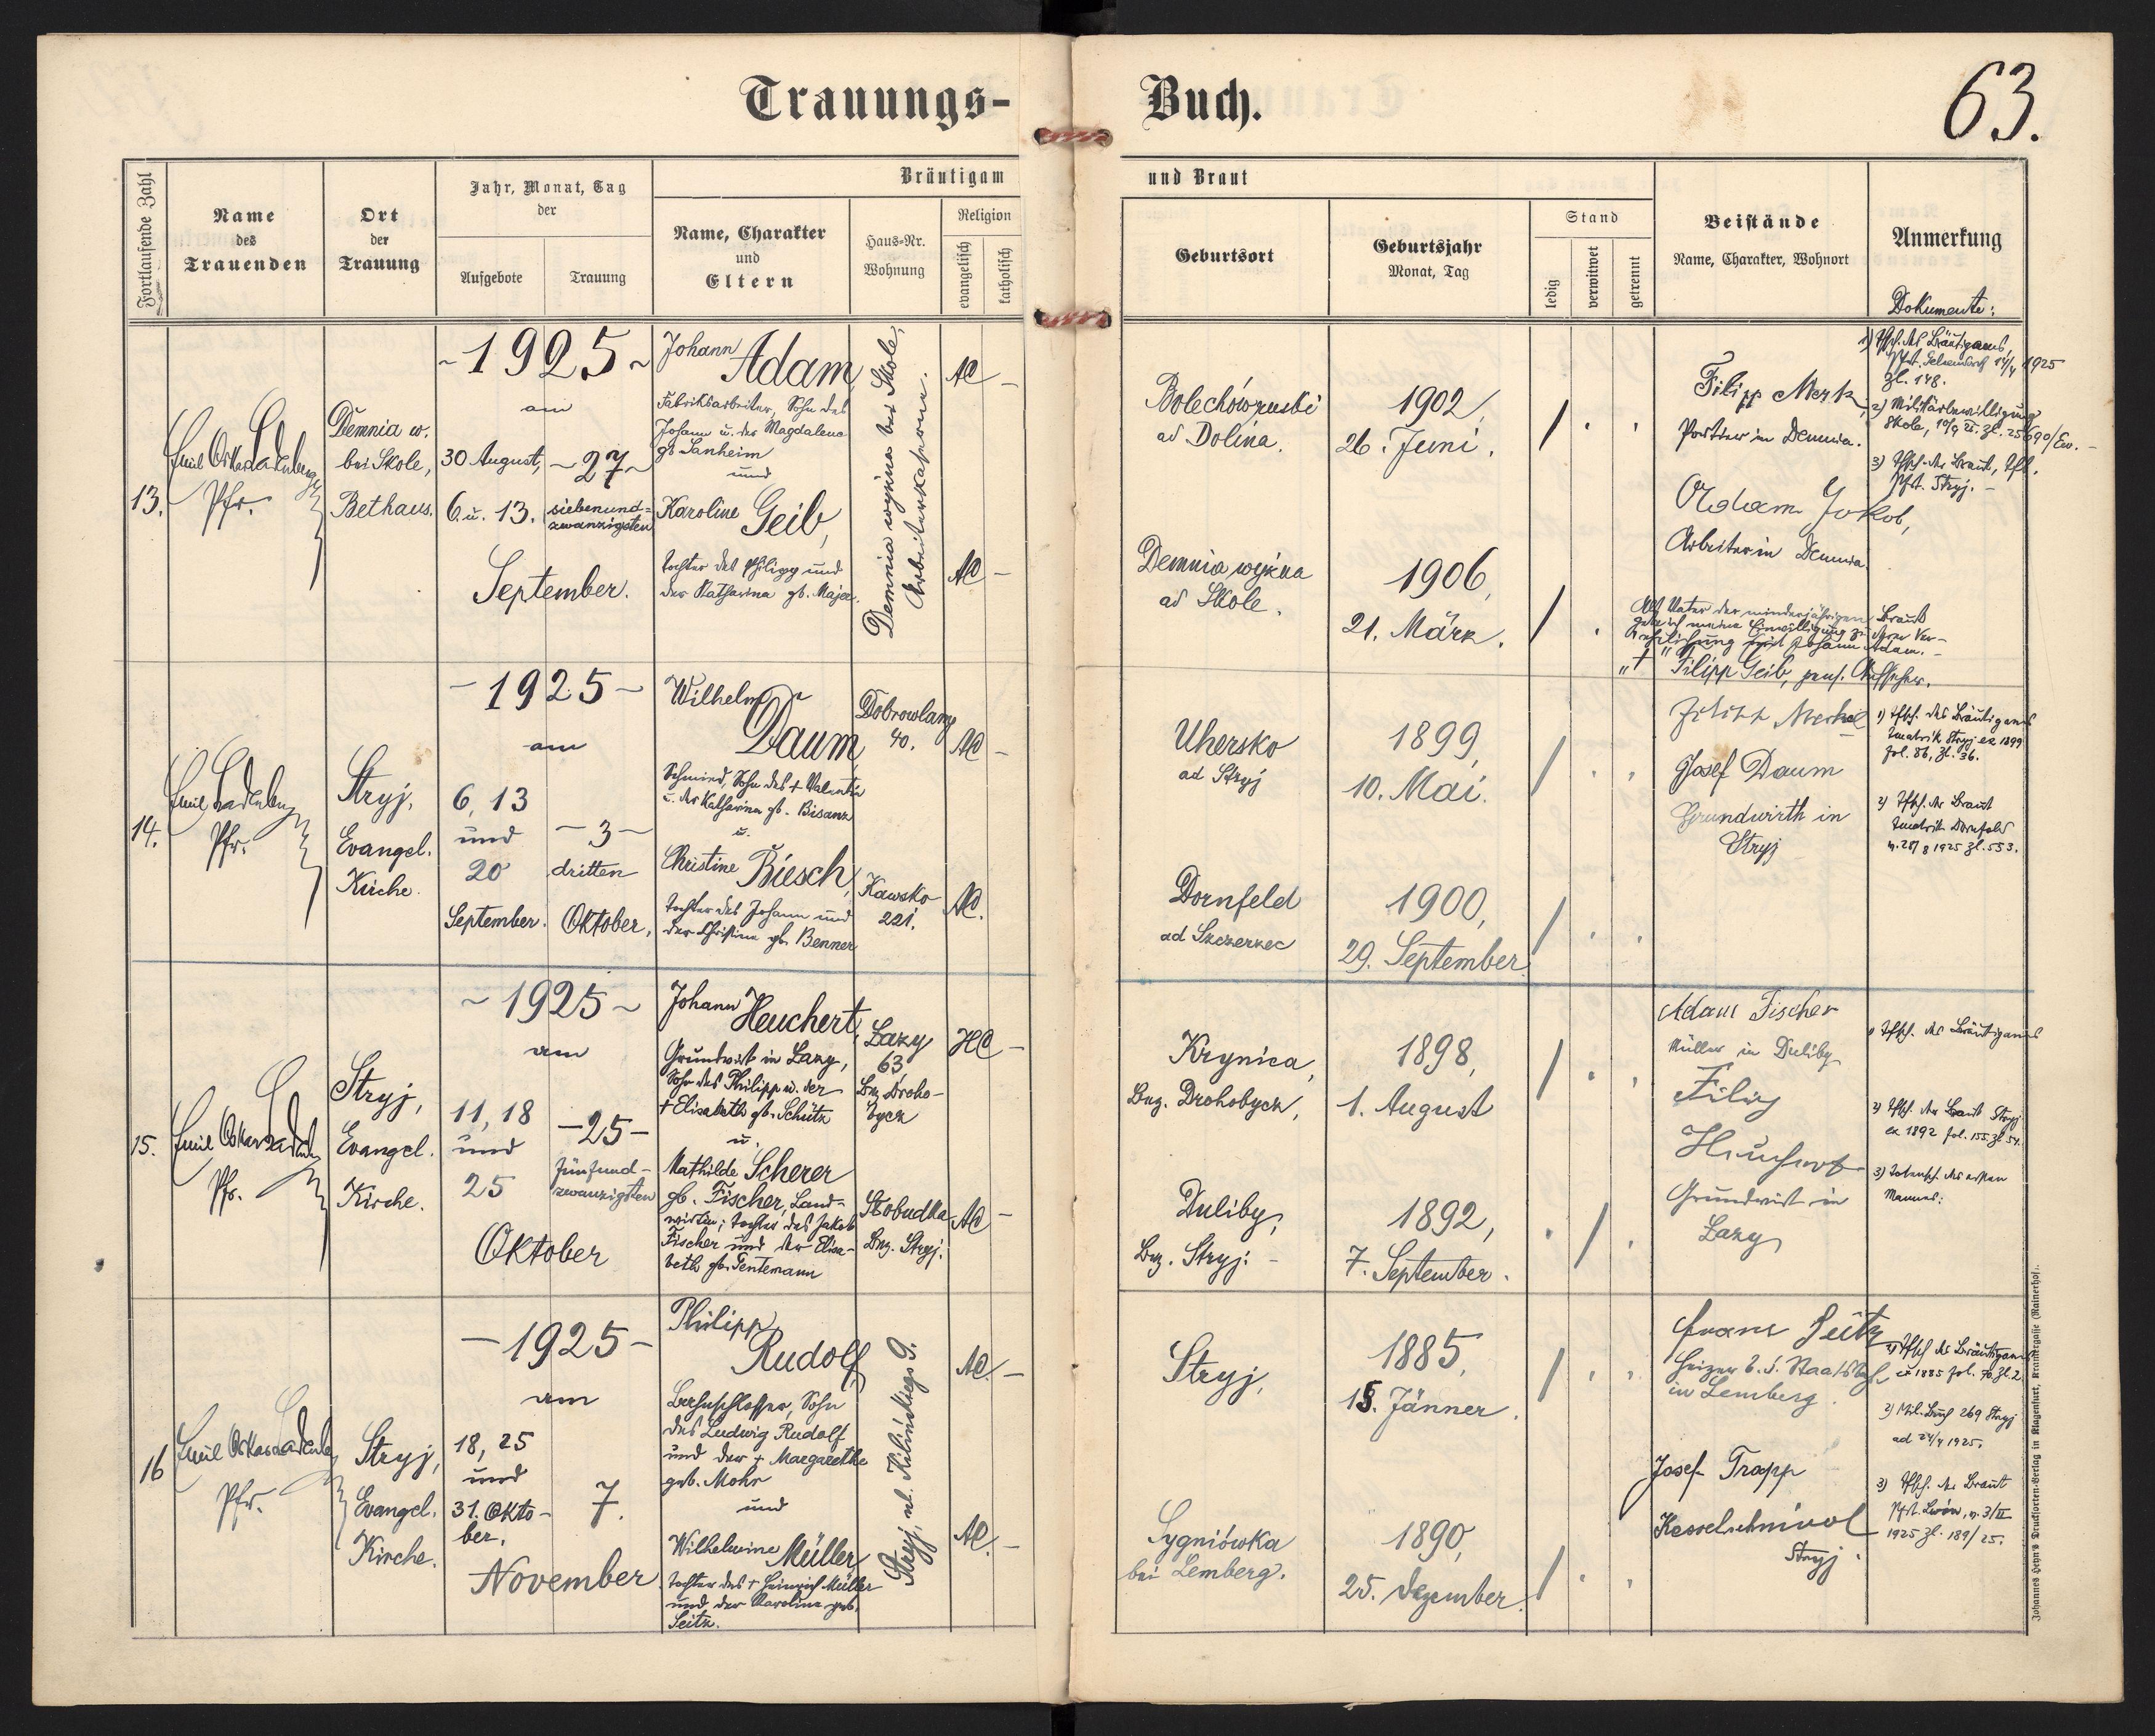 Trauungs-
Buch.
63.
Fortlaufende Zahl
Name
des
Trauenden
Ort
der
Trauung
Jahr, Monat, Tag
der
Aufgebote
Trauung
Bräutigam
Name, Charakter
und
Eltern
Haus-Nr.
Wohnung
Religion
evangelisch
katholisch
und Braut
Geburtsort
Geburtsjahr
Monat, Tag
Stand
ledig
verwitwet
getrennt
Beistände
Name, Charakter, Wohnort
Anmerkung
Dokumente:
13.
Pfr.
Demnia w.
bei Skole,
Bethaus.
- 1925 -
am
30 August,
6. u. 13.
- 27 -
siebenund-
zwanzigsten
September.
Johann
Adam,
Fabriksarbeiter, Sohn des
Johann u. der Magdalena
gb Sanheim
und
Karoline Geib,
Tochter des Philipp und
der Katharina gb. Majer.
Demnia wyżna bei Skole,
Arbeiterkaserne.
AC -
AC -
Bolechów ruski
ad Dolina.
1902,
26. Juni.
Demnia wyżna
ad Skole.
1906,
21. März.
Filipp Merk,
Portier in Demnia.
Adam Jakob,
Arbeiter in Demnia.
Als Vater der minderjährigen Braut
gebe ich meine Einwilligung zu ihrer Ver-
ehelichung mit Johann Adam. -
Filipp Geib, pens. Aufseher.
1) Tfsch. des Bräutigams,
1925
Zl. 148.
2) Militärbewilligung
Skole,
3) Tfsch. der Braut,
Pfst. Stryj. -
14.
Emil Ladenberger
Pfr.
Stryj,
Evangel.
Kirche.
- 1925 -
am
6, 13
und
20
September.
- 3 -
dritten
Oktober.
Wilhelm
Daum,
Schmied, Sohn des + Valentin
u. der Katharina gb. Bisanz
u.
Christine Büsch,
Tochter des Johann und
der Christine gb. Benner
Dobrowlany
40.
AC -
Kawsko
221.
AC.
Uhersko
ad Stryj
1899,
10. Mai.
Dornfeld
ad Szczerzec
1900,
29. September.
Josef Daum
Grundwirth in
Stryj
1) Tfsch. des Bräutigams
Tmatrik Stryj ex 1899
fol. 86, Zl. 36.
2) Tfsch. der Braut
Tmatrik Dornfeld
v. 28/8 1925 Zl. 553.
15.
Pfr.
Stryj,
Evangel.
Kirche.
- 1925 -
am
11, 18
und
25
- 25 -
fünfund-
zwanzigsten
Oktober
Johann Heuchert,
Grundwirt in Lazy,
Sohn des Philipp u. der
+ Elisabeth gb. Schütz
u.
Mathilde Scherer
gb. Fischer, Land-
wirtin; Tochter des Jakob
Fischer und der Elisa-
beth gb. Gentemann
Lazy
63,
Bez. Droho-
bycz
HC -
Slobudka
Bez. Stryj.
AC -
Krynica,
Bez. Drohobycz,
1898,
1. August
Duliby,
Bez. Stryj. -
1892,
7. September.
Adam Fischer
Müller in Duliby
Filip
Heuchert
Grundwirt in
Lazy
1) Tfsch. des Bräutigams
2) Tfsch. der Braut Stryj
ex 1892 fol. 155. Zl. 54.
3) Totensch. des ersten
Mannes.
16
Pfr.
Stryj,
Evangel.
Kirche.
- 1925 -
am
18, 25
und
31. Okto-
ber.
7.
November
Philipp
Rudolf,
Bahnschlosser, Sohn
des Ludwig Rudolf
und der + Margarethe
geb. Mohr
und
Wilhelmine Müller,
Tochter des + Heinrich Müller
und der Karoline geb.
Seitz.
Stryj, ul. Kilińskiego 9.
AC. -
AC. -
Stryj,
1885,
Jänner.
Sygniówka
bei Lemberg.
1890,
25. Dezember.
Franz Seitz
Heizer
in Lemberg.
Josef Trapp
Kesselschmied
Stryj.
1) Tfsch. des Bräutigams
ex 1885 fol. 70 Zl. 2
269 Stryj
ad 24/4 1925.
3) Tfsch. der Braut
Pfst. Lwów, v. 3/II
1925 Zl. 189/25.
Johannes Heyn's Drucksorten-Verlag in Klagenfurt, Kramergasse (Rainerhof).